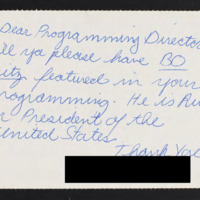 Dear Programming Director
ll ya please have BO
itz featured in your
programming. He is Ru
r President of the
United States
Thank You